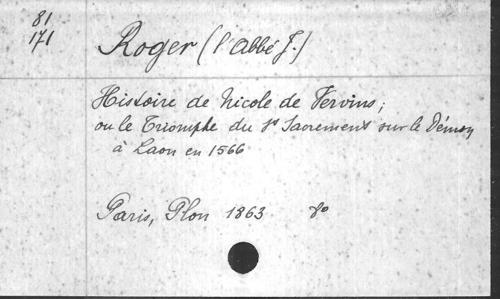 81
171
Roger (l'abbé J.)
Histoire de Nicole de Vervins;
ou le Triomphe du St Sacrement sur le Démon
à Laon en 1566
Paris, Plon 1863 8º